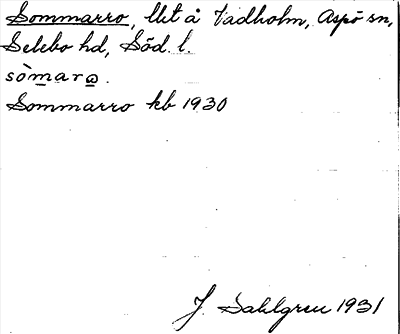 Sommarro, llt å Vadholm, Aspö sn,
Selebo hd, Söd. l.
sòmarω.
Sommarro kb 1930
J. Sahlgren 1931